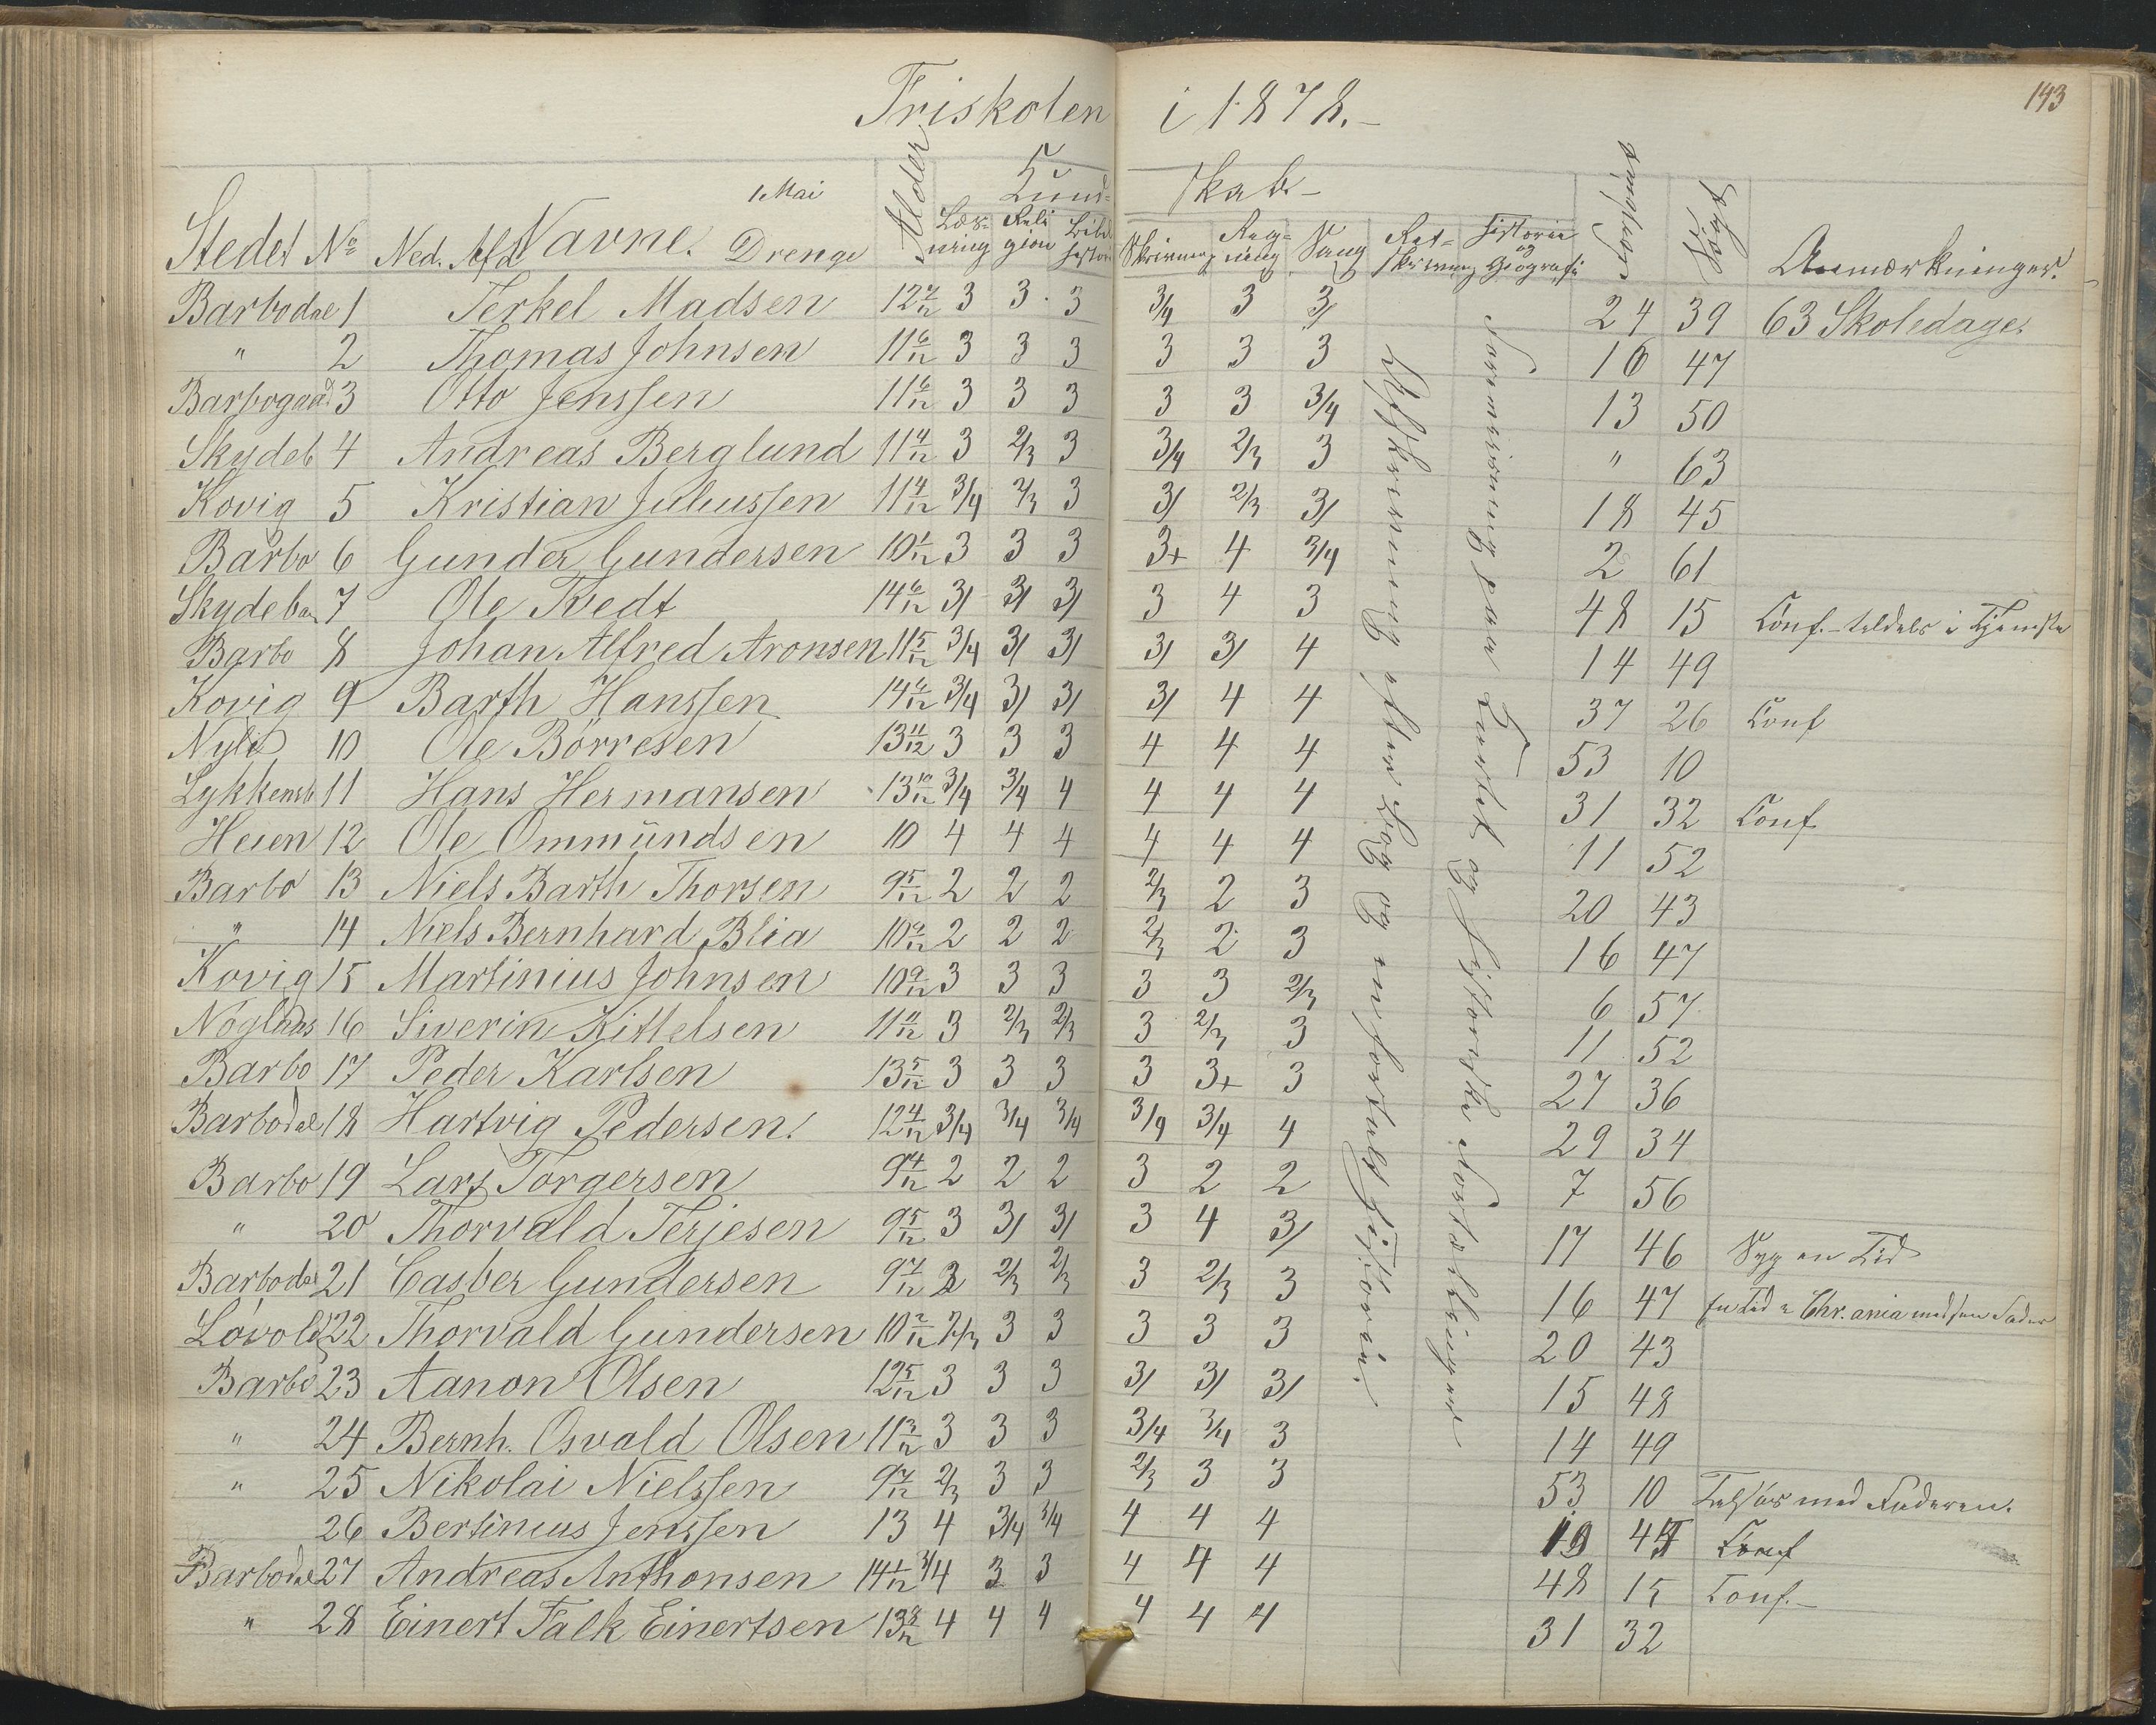 Friskolen i 1878.-
143
1 Mai
Kund- skab-
Stedet No Ned. Afd Navne. Drenge Alder Læs-ning Reli gion Bibl. historie Skrivning Reg-ning Sang Ret-skrivning Historie og Geografi Forsømt Søgt Anmærkninger.
Barbodal 1 Terkel Madsen 12 7/12 3 3 3 3/4 3 3/ 24 39 63 Skoledage.
" 2 Thomas Johnsen 11 6/12 3 3 3 3 3 3 16 47
Barbogaard 3 Otto Jenssen 11 6/12 3 3 3 3 3 3/4 13 50
Skydeb 4 Andreas Berglund 11 4/12 3 2/3 3 3/4 2/3 3 " 63
Kovig 5 Kristian Juliussen 11 4/12 3/4 2/3 3 3/ 2/3 3/ 18 45
Barbo 6 Gunder Gundersen 10 1/12 3 3 3 3+ 4 3/4 2 61
Skydeban 7 Ole Tvedt 14 6/12 3/ 3/ 3/ 3 4 3 48 15 Conf. - tildels i Tjeneste
Barbo 8 Johan Alfred Aronsen 11 5/12 3/4 3/ 3/ 3/ 3/ 4 14 49
Kovig 9 Barth Hanssen 14 6/12 3/4 3/ 3/ 3/ 4 4 37 26 Conf
Nylid 10 Ole Börresen 13 11/12 3 3 3 4 4 4 53 10
Lykkensb 11 Hans Hermansen 13 10/12 3/4 3/4 4 4 4 4 31 32 Conf
Heien 12 Ole Ommundsen 10 4 4 4 4 4 4 11 52
Barbo 13 Niels Barth Thorsen 9 5/12 2 2 2 2/3 2 3 20 43
" 14 Niels Bernhard Blia 10 9/12 2 2 2 2/3 2 3 16 47
Kovig 15 Martinius Johnsen 10 9/12 3 3 3 3 3 2/3 6 57
Nöglaas 16 Siverin Kittelsen 11 11/12 3 2/3 2/3 3 2/3 3 11 52
Barbo 17 Peder Karlsen 13 5/12 3 3 3 3 3+ 3 27 36
Barbodal 18 Hartvig Pedersen. 12 4/12 3/4 3/4 3/4 3/4 3/4 4 29 34
Barbo 19 Lars Torgersen 9 4/12 2 2 2 3 2 2 7 56
" 20 Thorvald Terjesen 9 5/12 3 3/ 3/ 3 4 3/ 17 46 Syg en Tid
Barbodal 21 Casber Gundersen 9 7/12 3 2/3 2/3 3 2/3 3 16 47 En Tid i Chr.ania med sin Fader
Lövold 22 Thorvald Gundersen 10 2/12 2/3 3 3 3 3 3 20 43
Barbo 23 Aanon Olsen 12 5/12 3 3 3 3/ 3/ 3/ 15 48
" 24 Bernh. Osvald Olsen 11 3/12 3 3 3 3/4 3/4 3 14 49
" 25 Nikolai Nielssen 9 7/12 2/3 3 3 2/3 3 3 53 10 Tilsøs med Faderen.
26 Bertinius Jenssen 13 4 3/4 3/4 4 4 4 Conf
Barbodal 27 Andreas Anthonsen 14 1/12 3/4 3 3 4 4 4 48 15 Conf.-
" 28 Einert Falk Einertsen 13 8/12 4 4 4 4 4 4 31 32
Retskrivning efter Bog og enfortalt Historie.